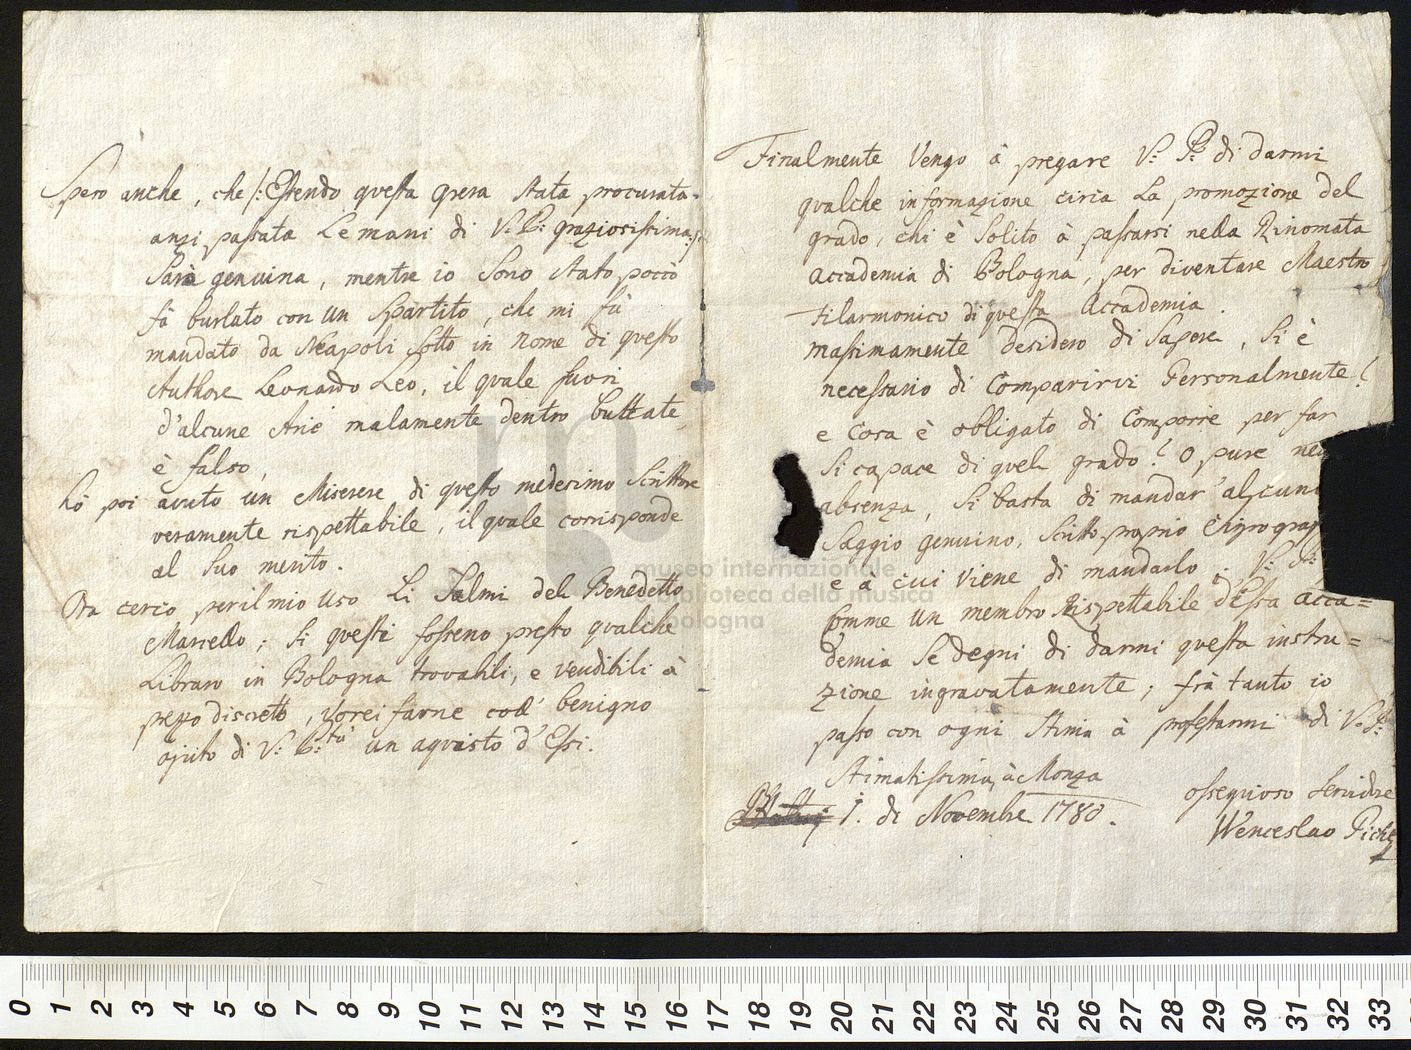 Spero anche, che /: Essendo questa opera stata procurata
anzi passata Le mani di V: P: graziosissima :/
Sarà genuina, mentre io sono stato pocco
fà burlato con un Spartito, che mi fù
mandato da Neapoli sotto in nome di questo
Authore Leonardo Leo, il quale fuori
d'alcune Arie malamente dentro buttate,
è falso,
hò poi avuto un Miserere di questo medesimo Scrittore
veramente rispettabile, il quale corrisponde
al Suo merito.
Ora cerco per il mio uso Li Salmi del Benedetto
Marcello; Si questi fosseno presso qualche
Libraro in Bologna trovabili, e vendibili à
prezzo discretto, vorei farne col' benigno
ajuto di V: P:tà un aquisto d'Essi.
Finalmente Vengo à pregare V: P: di darmi
qualche informazione circa La promozione del
grado, chi è Solito à passarsi nella Rinomata
Accademia di Bologna, per diventare Maestro
Filarmonico di questa Accademia.
Massimamente desidero di Sapere, Si è
necessario di Comparirvi Personalmente?
e Cosa è obligato di Comporre per far
Si capace di quel grado? O pure
absenza, Si basta di mandar' alcun
Saggio genuino, Scritto proprio
e à cui Viene di mandarlo. V: P:
Comme un membro Rispettabile d'Essa Acca=
demia Se degni di darmi questa instru=
zione ingravatamente; frà tanto io
passo con ogni Stima à professarmi di V: P:
Stimatissima, à Monza
1. di Novembre 1780.
ossequioso Servidore
Wenceslao
museo internazionale
biblioteca della musica
bologna
0 1 2 3 4 5 6 7 8 9 10 11 12 13 14 15 16 17 18 19 20 21 22 23 24 25 26 27 28 29 30 31 32 33